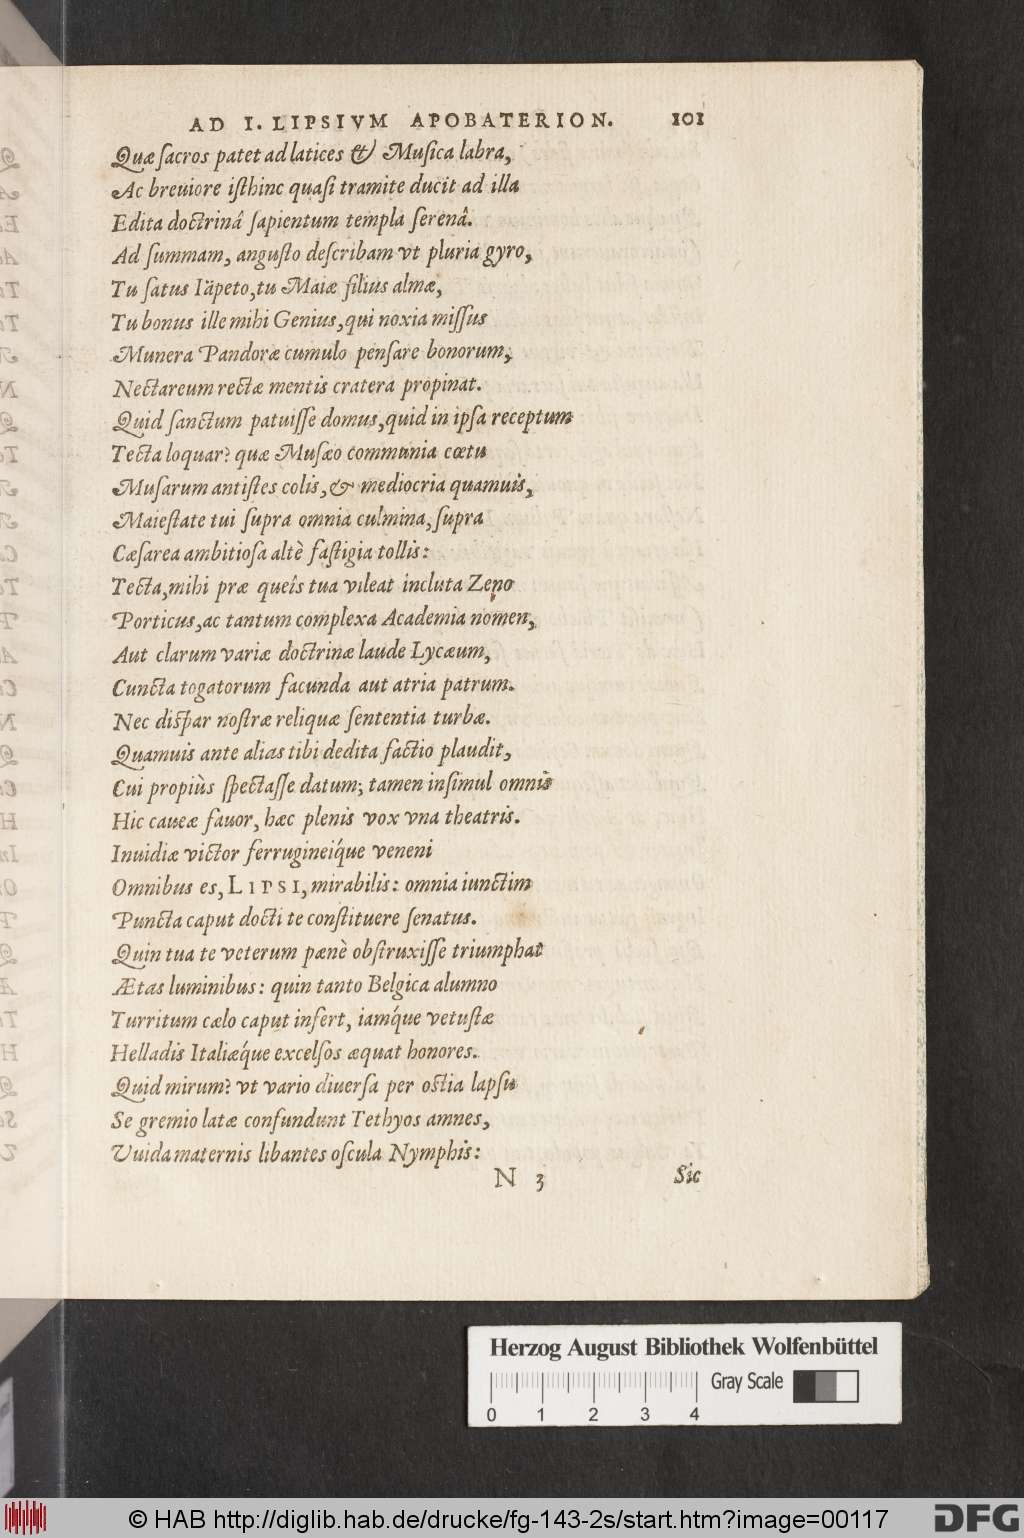 AD I. LIPSIVM APOBATERION. 101
Quæ ſacros patet ad latices & Muſica labra,
Ac breuiore iſthinc quaſi tramite ducit ad illa
Edita doctrinâ ſapientum templa ſerenâ.
Ad ſummam, anguſto deſcribam vt pluria gyro,
Tu ſatus Iäpeto, tu Maiæ filius almæ,
Tu bonus ille mihi Genius, qui noxia miſſus
Munera Pandoræ cumulo penſare bonorum,
Nectareum rectæ mentis cratera propinat.
Quid ſanctum patuiſſe domus, quid in ipſa receptum
Tecta loquar? quæ Muſæo communia cœtu
Muſarum antiſtes colis, & mediocria quamuis,
Maieſtate tui ſupra omnia culmina, ſupra
Cæſarea ambitioſa altè faſtigia tollis:
Tecta, mihi præ queîs tua vileat incluta Zeno
Porticus, ac tantum complexa Academia nomen,
Aut clarum variæ doctrinæ laude Lycæum,
Cuncta togatorum facunda aut atria patrum.
Nec diſpar noſtræ reliquæ ſententia turbæ.
Quamuis ante alias tibi dedita factio plaudit,
Cui propiùs ſpectaſſe datum; tamen inſimul omnis
Hic caueæ fauor, hæc plenis vox vna theatris.
Inuidiæ victor ferrugineíque veneni
Omnibus es, LIPSI, mirabilis: omnia iunctim
Puncta caput docti te conſtituere ſenatus.
Quin tua te veterum pænè obſtruxiſſe triumphat
Ætas luminibus: quin tanto Belgica alumno
Turritum cælo caput infert, iamq́ue vetuſtæ
Helladis Italiæq́ue excelſos æquat honores.
Quid mirum? vt vario diuerſa per oſtia lapſu
Se gremio latæ confundunt Tethyos amnes,
Vuida maternis libantes oſcula Nymphis:
N 3 Sic
Herzog August Bibliothek Wolfenbüttel
Gray Scale
0 1 2 3 4
© HAB http://diglib.hab.de/drucke/fg-143-2s/start.htm?image=00117 DFG